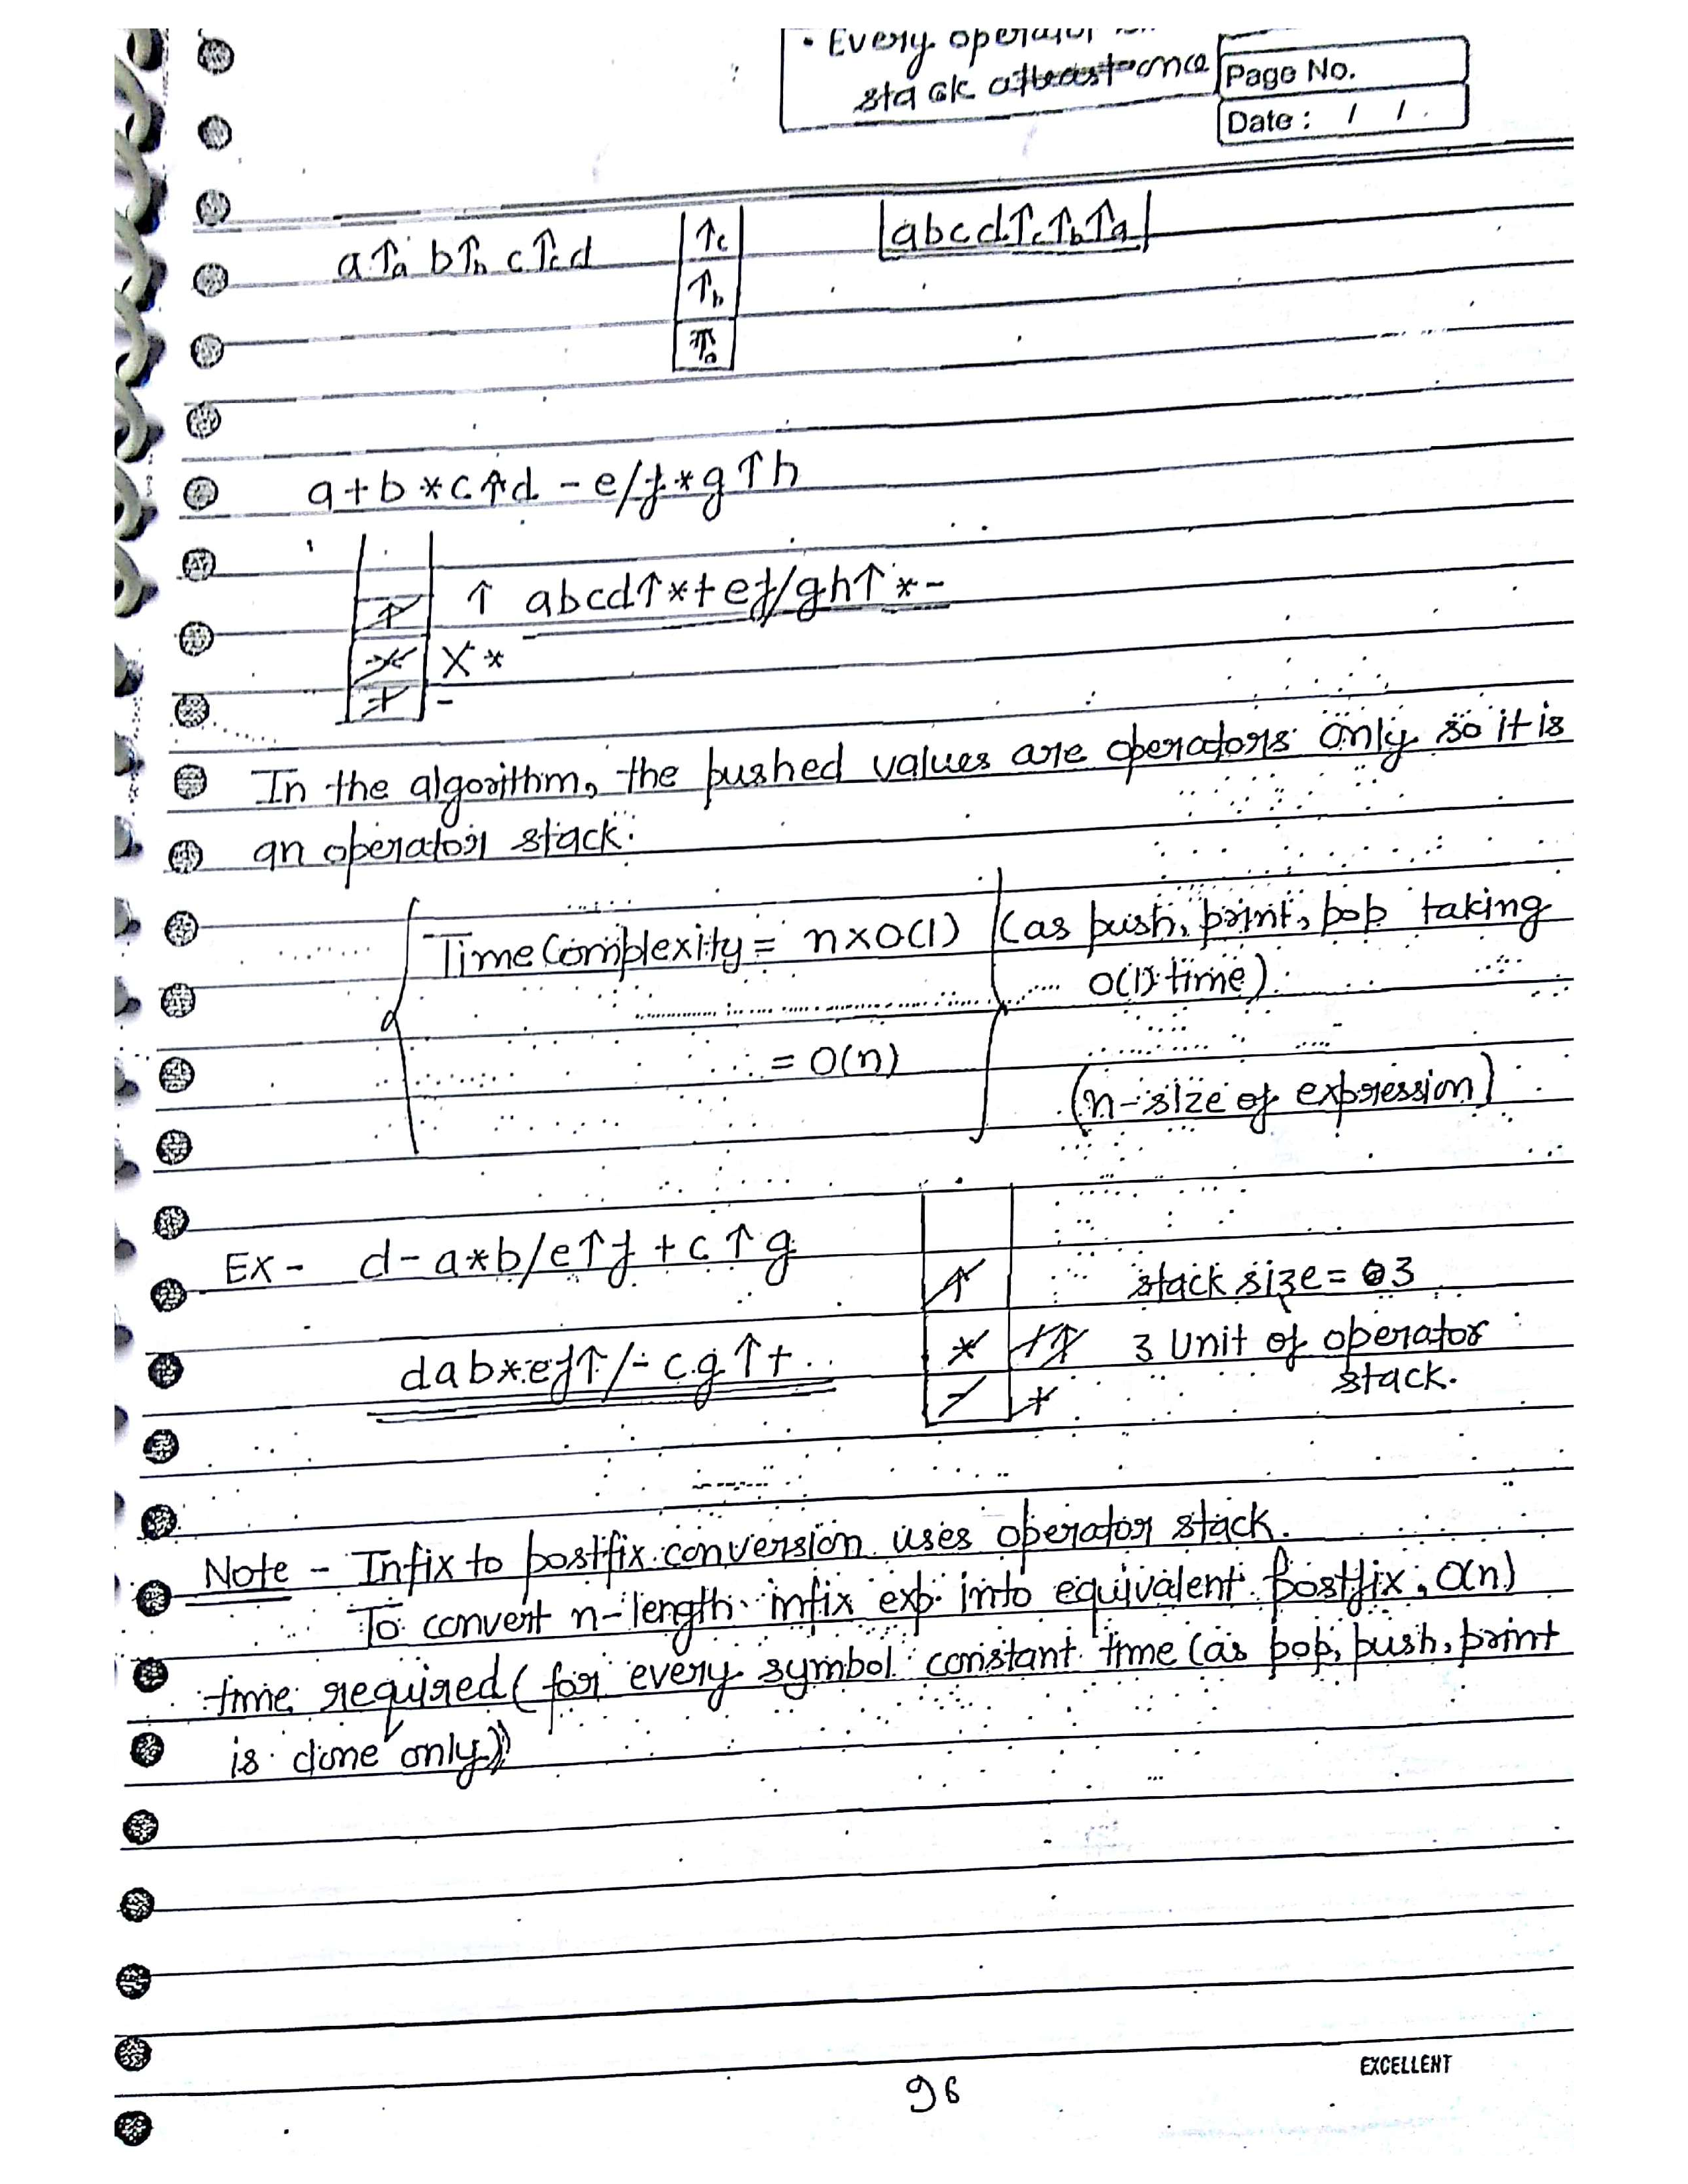 • Every operator
stack atleast once
Page No.
Date : / /
a↑ₐ b↑b c↑c d
↑c
↑b
↑a
abcd↑c↑b↑a
a+b*c↑d - e/f*g↑h
↑ ↑ abcd↑*+ef/gh↑*-
* X *
+ -
In the algorithm, the pushed values are operators only so it is
an operator stack.
Time Complexity = n×O(1) (as push, print, pop taking
O(1) time)
= O(n)
(n-size of expression)
Ex - d-a*b/e↑f+c↑g
↑ stack size = 3
dab*ef↑/-cg↑+ * / ↑ 3 Unit of operator
stack.
- +
Note - Infix to postfix conversion uses operator stack.
To convert n-length infix exp. into equivalent postfix, O(n)
time required (for every symbol constant time (as pop, push, print
is done only))
96
EXCELLENT